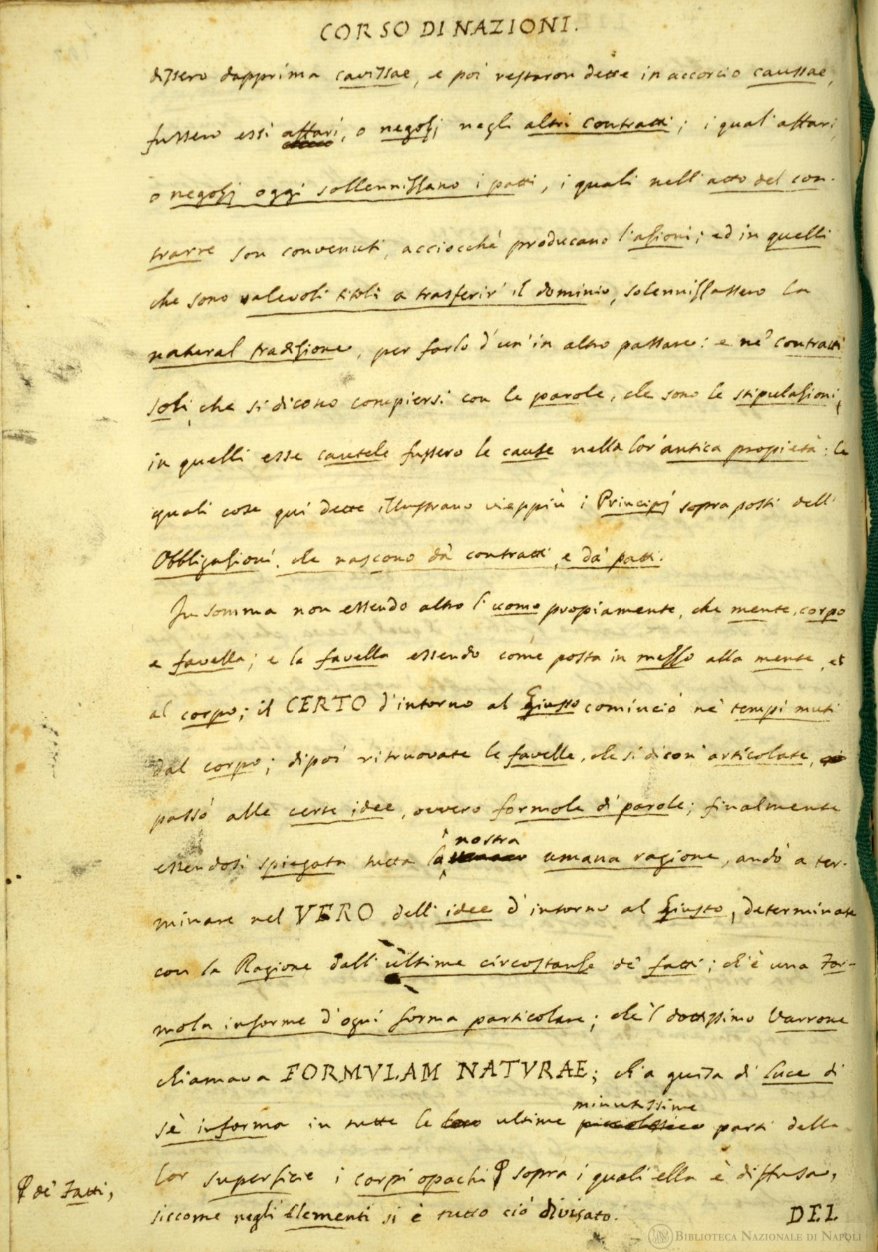 CORSO DI NAZIONI.
dissero dapprima cavissae, e poi restaron dette in accorcio caussae,
fussero essi affari, o negozj negli altri contratti; i quali affari,
o negozj oggi sollennizzano i patti, i quali nell'atto del con-
trarre son convenuti, acciocchè producano l'azioni; ed in quelli
che sono valevoli titoli a trasferir' il dominio, solennizzassero la
natural tradizione, per farlo d'un' in altro passare: e ne' contratti
soli, che si dicono compiersi con le parole, che sono le stipulazioni,
in quelli esse cautele fussero le cause nella lor' antica propietà: le
quali cose qui dette illustrano vieppiù i Principj sopra posti dell'
Obbligazioni, che nascono da' contratti, e da' patti.
In somma non essendo altro l'uomo propiamente, che mente, corpo
e favella; e la favella essendo come posta in mezzo alla mente, et
al corpo; il CERTO d'intorno al Giusto cominciò ne' tempi muti
dal corpo; dipoi ritruovate le favelle, che si dicon' articolate,
passò alle certe idee, ovvero formole di parole; finalmente
essendosi spiegata tutta la nostra umana ragione, andò a ter-
minare nel VERO dell'idee d'intorno al Giusto, determinate
con la Ragione dall'ultime circostanze de' fatti; ch'è una For-
mola informe d'ogni forma particolare; che'l dottissimo Varrone
chiamava FORMVLAM NATVRAE; ch'a guisa di luce di
sè informa in tutte le ultime minutissime parti della
lor superficie i corpi opachi sopra i quali ella è diffusa,
de' Fatti,
siccome negli Elementi si è tutto ciò divisato.
DEL
BIBLIOTECA NAZIONALE DI NAPOLI